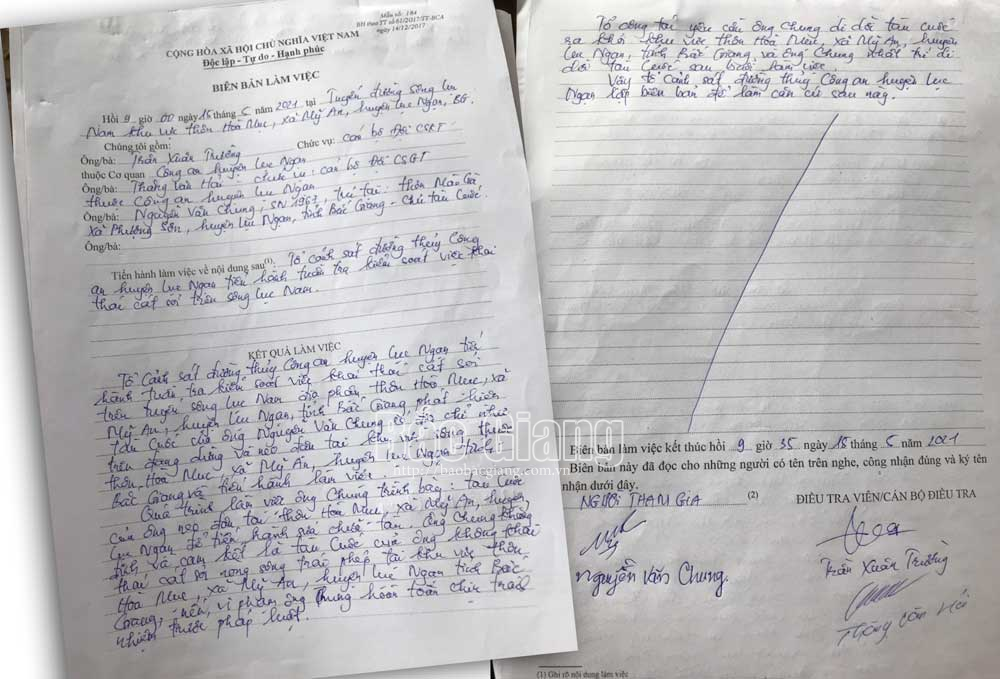 Mẫu số: 184
BH theo TT số 61/2017/TT-BCA
ngày 14/12/2017
CỘNG HÒA XÃ HỘI CHỦ NGHĨA VIỆT NAM
Độc lập - Tự do - Hạnh phúc
BIÊN BẢN LÀM VIỆC
Hồi 9 giờ 00 ngày 15 tháng 5 năm 2021 tại Tuyến đường sông Lục
Nam khu vực thôn Hoà Mục, xã Mỹ An, huyện Lục Ngạn, BG.
Chúng tôi gồm:
Ông/bà: Trần Xuân Trường Chức vụ: Cán bộ Đội CSGT
thuộc Cơ quan Công an huyện Lục Ngạn
Ông/bà: Thăng Văn Hải chức vụ: cán bộ Đội CSGT
thuộc Công an huyện Lục Ngạn
Ông/bà: Nguyễn Văn Chung, SN 1967, trú tại: thôn
xã Phượng Sơn, huyện Lục Ngạn, tỉnh Bắc Giang - Chủ tàu Cuốc.
Ông/bà:
Tiến hành làm việc về nội dung sau(1): Tổ Cảnh sát đường thủy Công
an huyện Lục Ngạn tiến hành tuần tra kiểm soát việc khai
thác cát sỏi trên sông Lục Nam.
KẾT QUẢ LÀM VIỆC
Tổ Cảnh sát đường thủy Công an huyện Lục Ngạn tiến
hành tuần tra kiểm soát việc khai thác cát sỏi
trên tuyến sông Lục Nam địa phận thôn Hoà Mục, xã
Mỹ An, huyện Lục Ngạn, tỉnh Bắc Giang phát hiện
tàu Cuốc của ông Nguyễn Văn Chung có địa chỉ như
trên đang dừng và neo đậu tại khu vực sông thuộc
thôn Hoà Mục, xã Mỹ An, huyện Lục Ngạn, tỉnh
Bắc Giang và tiến hành làm việc.
Quá trình làm việc ông Chung trình bày: tàu Cuốc
của ông neo đậu tại thôn Hoà Mục, xã Mỹ An, huyện
Lục Ngạn để tiến hành sửa chữa tàu. Ông Chung khẳng
định và cam kết là tàu Cuốc của ông không khai
thác cát sỏi lòng sông trái phép tại khu vực thôn
Hoà Mục, xã Mỹ An, huyện Lục Ngạn tỉnh Bắc
Giang, nếu vi phạm ông Chung hoàn toàn chịu trách
nhiệm trước pháp luật.
Tổ công tác yêu cầu ông Chung di dời tàu cuốc
ra khỏi khu vực thôn Hoà Mục, xã Mỹ An, huyện
Lục Ngạn, tỉnh Bắc Giang và ông Chung nhất trí di
dời tàu Cuốc sau buổi làm việc.
Vậy tổ Cảnh sát đường thủy Công an huyện Lục
Ngạn lập biên bản để làm căn cứ sau này.
Biên bản làm việc kết thúc hồi 9 giờ 35 ngày 15 tháng 5 năm 2021
Biên bản này đã đọc cho những người có tên trên nghe, công nhận đúng và ký tên
nhận dưới đây.
NGƯỜI THAM GIA (2) ĐIỀU TRA VIÊN/CÁN BỘ ĐIỀU TRA
Nguyễn Văn Chung. Trần Xuân Trường
Thăng Văn Hải
(1) Ghi rõ nội dung làm việc
Bắc Giang
http://baobacgiang.com.vn